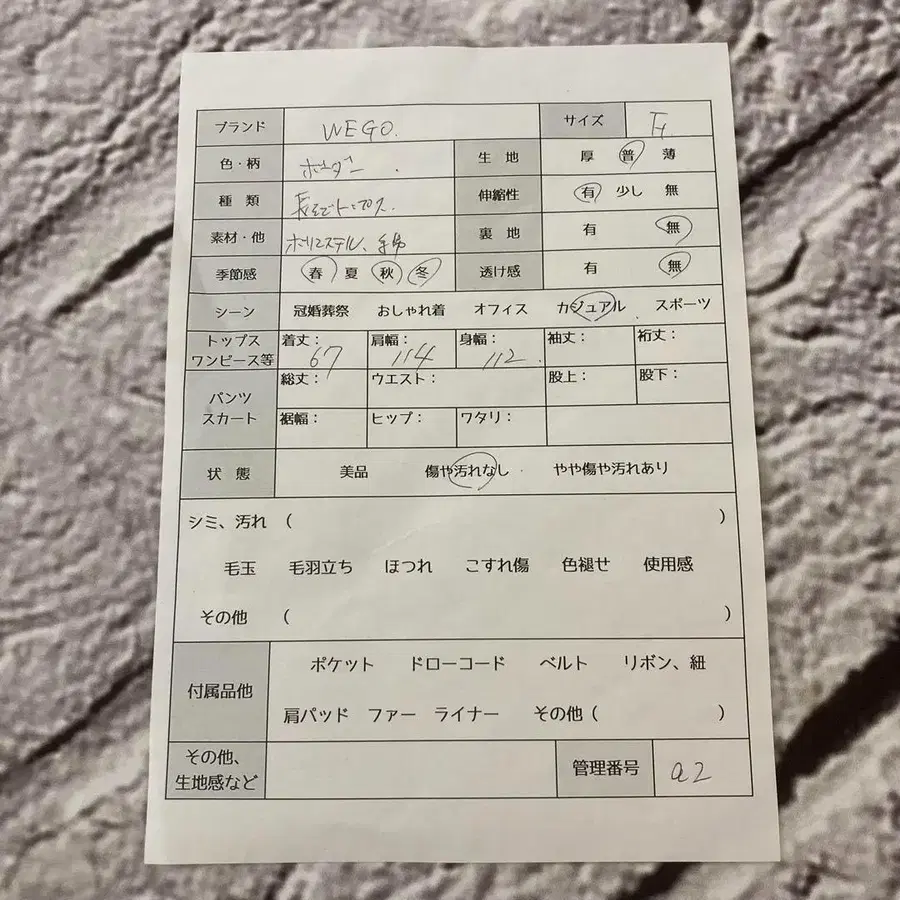 ブランド WEGO. サイズ F
色・柄 ボーダー 生地 厚 普 薄
種類 長そでトップス. 伸縮性 有 少し 無
素材・他 ポリエステル、綿 裏地 有 無
季節感 春 夏 秋 冬 透け感 有 無
シーン 冠婚葬祭 おしゃれ着 オフィス カジュアル スポーツ
トップス ワンピース等 着丈:67 肩幅:114 身幅:112 袖丈: 裄丈:
パンツ スカート 総丈: ウエスト: 股上: 股下:
裾幅: ヒップ: ワタリ:
状態 美品 傷や汚れなし やや傷や汚れあり
シミ、汚れ ( )
毛玉 毛羽立ち ほつれ こすれ傷 色褪せ 使用感
その他 ( )
付属品他 ポケット ドローコード ベルト リボン、紐
肩パッド ファー ライナー その他 ( )
その他、生地感など 管理番号 a2